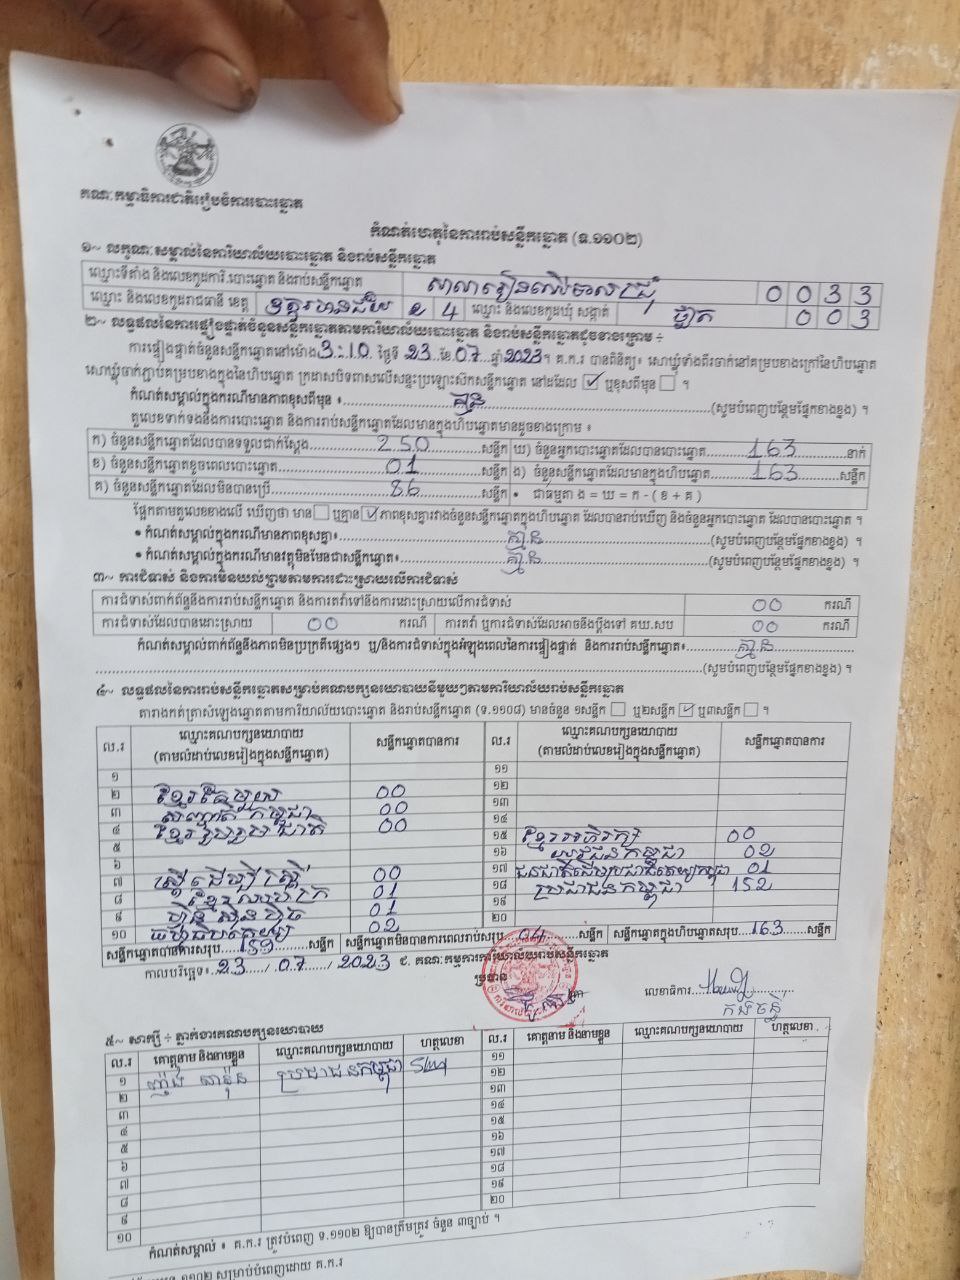 គណៈកម្មាធិការជាតិរៀបចំការបោះឆ្នោត
កំណត់ហេតុនៃការរាប់សន្លឹកឆ្នោត (ទ.១១០២)
១~ លក្ខណៈសម្គាល់នៃការិយាល័យបោះឆ្នោត និងរាប់សន្លឹកឆ្នោត
ឈ្មោះទីតាំង និងលេខកូដការិ.បោះឆ្នោត និងរាប់សន្លឹកឆ្នោត សាលារៀន 0 0 3 3
ឈ្មោះ និងលេខកូដរាជធានី ខេត្ត ឧត្តរមានជ័យ 2 4 ឈ្មោះ និងលេខកូដឃុំ សង្កាត់ 0 0 3
២~ លទ្ធផលនៃការផ្ទៀងផ្ទាត់ចំនួនសន្លឹកឆ្នោតតាមការិយាល័យបោះឆ្នោត និងរាប់សន្លឹកឆ្នោតដូចខាងក្រោម ÷
ការផ្ទៀងផ្ទាត់ចំនួនសន្លឹកឆ្នោតនៅម៉ោង 3:10 ថ្ងៃទី 23 ខែ 07 ឆ្នាំ 2023។ គ.ក.រ បានពិនិត្យ៖ សោឃ្លុំទាំងពីរចាក់នៅគម្របខាងក្រៅនៃហិបឆ្នោត
សោឃ្លុំចាក់ភ្ជាប់គម្របខាងក្នុងនៃហិបឆ្នោត ក្រដាសបិទពាសលើសន្ទះប្រឡោះស៊កសន្លឹកឆ្នោត នៅដដែល ☑ ឬខុសពីមុន ☐ ។
កំណត់សម្គាល់ក្នុងករណីមានភាពខុសពីមុន ៖ គ្មាន (សូមបំពេញបន្ថែមផ្នែកខាងខ្នង) ។
តួលេខទាក់ទងនឹងការបោះឆ្នោត និងការរាប់សន្លឹកឆ្នោតដែលមានក្នុងហិបឆ្នោតមានដូចខាងក្រោម ៖
ក) ចំនួនសន្លឹកឆ្នោតដែលបានទទួលជាក់ស្តែង 250 សន្លឹក ឃ) ចំនួនអ្នកបោះឆ្នោតដែលបានបោះឆ្នោត 163 នាក់
ខ) ចំនួនសន្លឹកឆ្នោតខូចពេលបោះឆ្នោត 01 សន្លឹក ង) ចំនួនសន្លឹកឆ្នោតដែលមានក្នុងហិបឆ្នោត 163 សន្លឹក
គ) ចំនួនសន្លឹកឆ្នោតដែលមិនបានប្រើ 86 សន្លឹក • ជាធម្មតា ង = ឃ = ក - ( ខ + គ )
ផ្អែកតាមតួលេខខាងលើ ឃើញថា មាន ☐ ឬគ្មាន ☑ ភាពខុសគ្នារវាងចំនួនសន្លឹកឆ្នោតក្នុងហិបឆ្នោត ដែលបានរាប់ឃើញ និងចំនួនអ្នកបោះឆ្នោត ដែលបានបោះឆ្នោត ។
• កំណត់សម្គាល់ក្នុងករណីមានភាពខុសគ្នា៖ គ្មាន (សូមបំពេញបន្ថែមផ្នែកខាងខ្នង) ។
• កំណត់សម្គាល់ក្នុងករណីមានវត្ថុមិនមែនជាសន្លឹកឆ្នោត៖ គ្មាន (សូមបំពេញបន្ថែមផ្នែកខាងខ្នង) ។
៣~ ការជំទាស់ និងការមិនយល់ព្រមតាមការដោះស្រាយលើការជំទាស់
ការជំទាស់ពាក់ព័ន្ធនឹងការរាប់សន្លឹកឆ្នោត និងការតវ៉ាទៅនឹងការដោះស្រាយលើការជំទាស់ 00 ករណី
ការជំទាស់ដែលបានដោះស្រាយ 00 ករណី ការតវ៉ា ឬការជំទាស់ដែលអាចនឹងប្តឹងទៅ គឃ.សប 00 ករណី
កំណត់សម្គាល់ពាក់ព័ន្ធនឹងភាពមិនប្រក្រតីផ្សេងៗ ឬ/និងការជំទាស់ក្នុងអំឡុងពេលនៃការផ្ទៀងផ្ទាត់ និងការរាប់សន្លឹកឆ្នោត៖ គ្មាន
(សូមបំពេញបន្ថែមផ្នែកខាងខ្នង) ។
៤~ លទ្ធផលនៃការរាប់សន្លឹកឆ្នោតសម្រាប់គណបក្សនយោបាយនីមួយៗតាមការិយាល័យរាប់សន្លឹកឆ្នោត
តារាងកត់ត្រាសំឡេងឆ្នោតតាមការិយាល័យបោះឆ្នោត និងរាប់សន្លឹកឆ្នោត (ទ.១១០៨) មានចំនួន ១សន្លឹក ☐ ឬ២សន្លឹក ☑ ឬ៣សន្លឹក ☐ ។
ល.រ ឈ្មោះគណបក្សនយោបាយ (តាមលំដាប់លេខរៀងក្នុងសន្លឹកឆ្នោត) សន្លឹកឆ្នោតបានការ ល.រ ឈ្មោះគណបក្សនយោបាយ (តាមលំដាប់លេខរៀងក្នុងសន្លឹកឆ្នោត) សន្លឹកឆ្នោតបានការ
១ ១១
២ ខ្មែរតែមួយ 00 ១២
៣ សញ្ជាតិកម្ពុជា 00 ១៣
៤ ខ្មែររួបរួមជាតិ 00 ១៤
៥ ១៥ ខ្មែរអភិរក្ស 00
៦ ១៦ យុវជនកម្ពុជា 02
៧ ស្ត្រីដើម្បីស្ត្រី 00 ១៧ ជនជាតិដើមប្រជាធិបតេយ្យកម្ពុជា 01
៨ ខ្មែរឈប់ក្រ 01 ១៨ ប្រជាជនកម្ពុជា 152
៩ ហ្វ៊ុនស៊ិនប៉ិច 01 ១៩
១០ ធម្មាធិបតេយ្យ 02 ២០
សន្លឹកឆ្នោតបានការសរុប 159 សន្លឹក សន្លឹកឆ្នោតមិនបានការពេលរាប់សរុប 04 សន្លឹក សន្លឹកឆ្នោតក្នុងហិបឆ្នោតសរុប 163 សន្លឹក
កាលបរិច្ឆេទ៖ 23 / 07 / 2023 ៩. គណៈកម្មការការិយាល័យរាប់សន្លឹកឆ្នោត
ប្រធាន
លេខាធិការ
៥~ សាក្សី ÷ ភ្នាក់ងារគណបក្សនយោបាយ
ល.រ គោត្តនាម និងនាមខ្លួន ឈ្មោះគណបក្សនយោបាយ ហត្ថលេខា ល.រ គោត្តនាម និងនាមខ្លួន ឈ្មោះគណបក្សនយោបាយ ហត្ថលេខា
១ ប្រជាជនកម្ពុជា ១១
២ ១២
៣ ១៣
៤ ១៤
៥ ១៥
៦ ១៦
៧ ១៧
៨ ១៨
៩ ១៩
១០ ២០
កំណត់សម្គាល់ ៖ គ.ក.រ ត្រូវបំពេញ ទ.១១០២ ឱ្យបានត្រឹមត្រូវ ចំនួន ៣ច្បាប់ ។
១១០២ សម្រាប់បំពេញដោយ គ.ក.រ